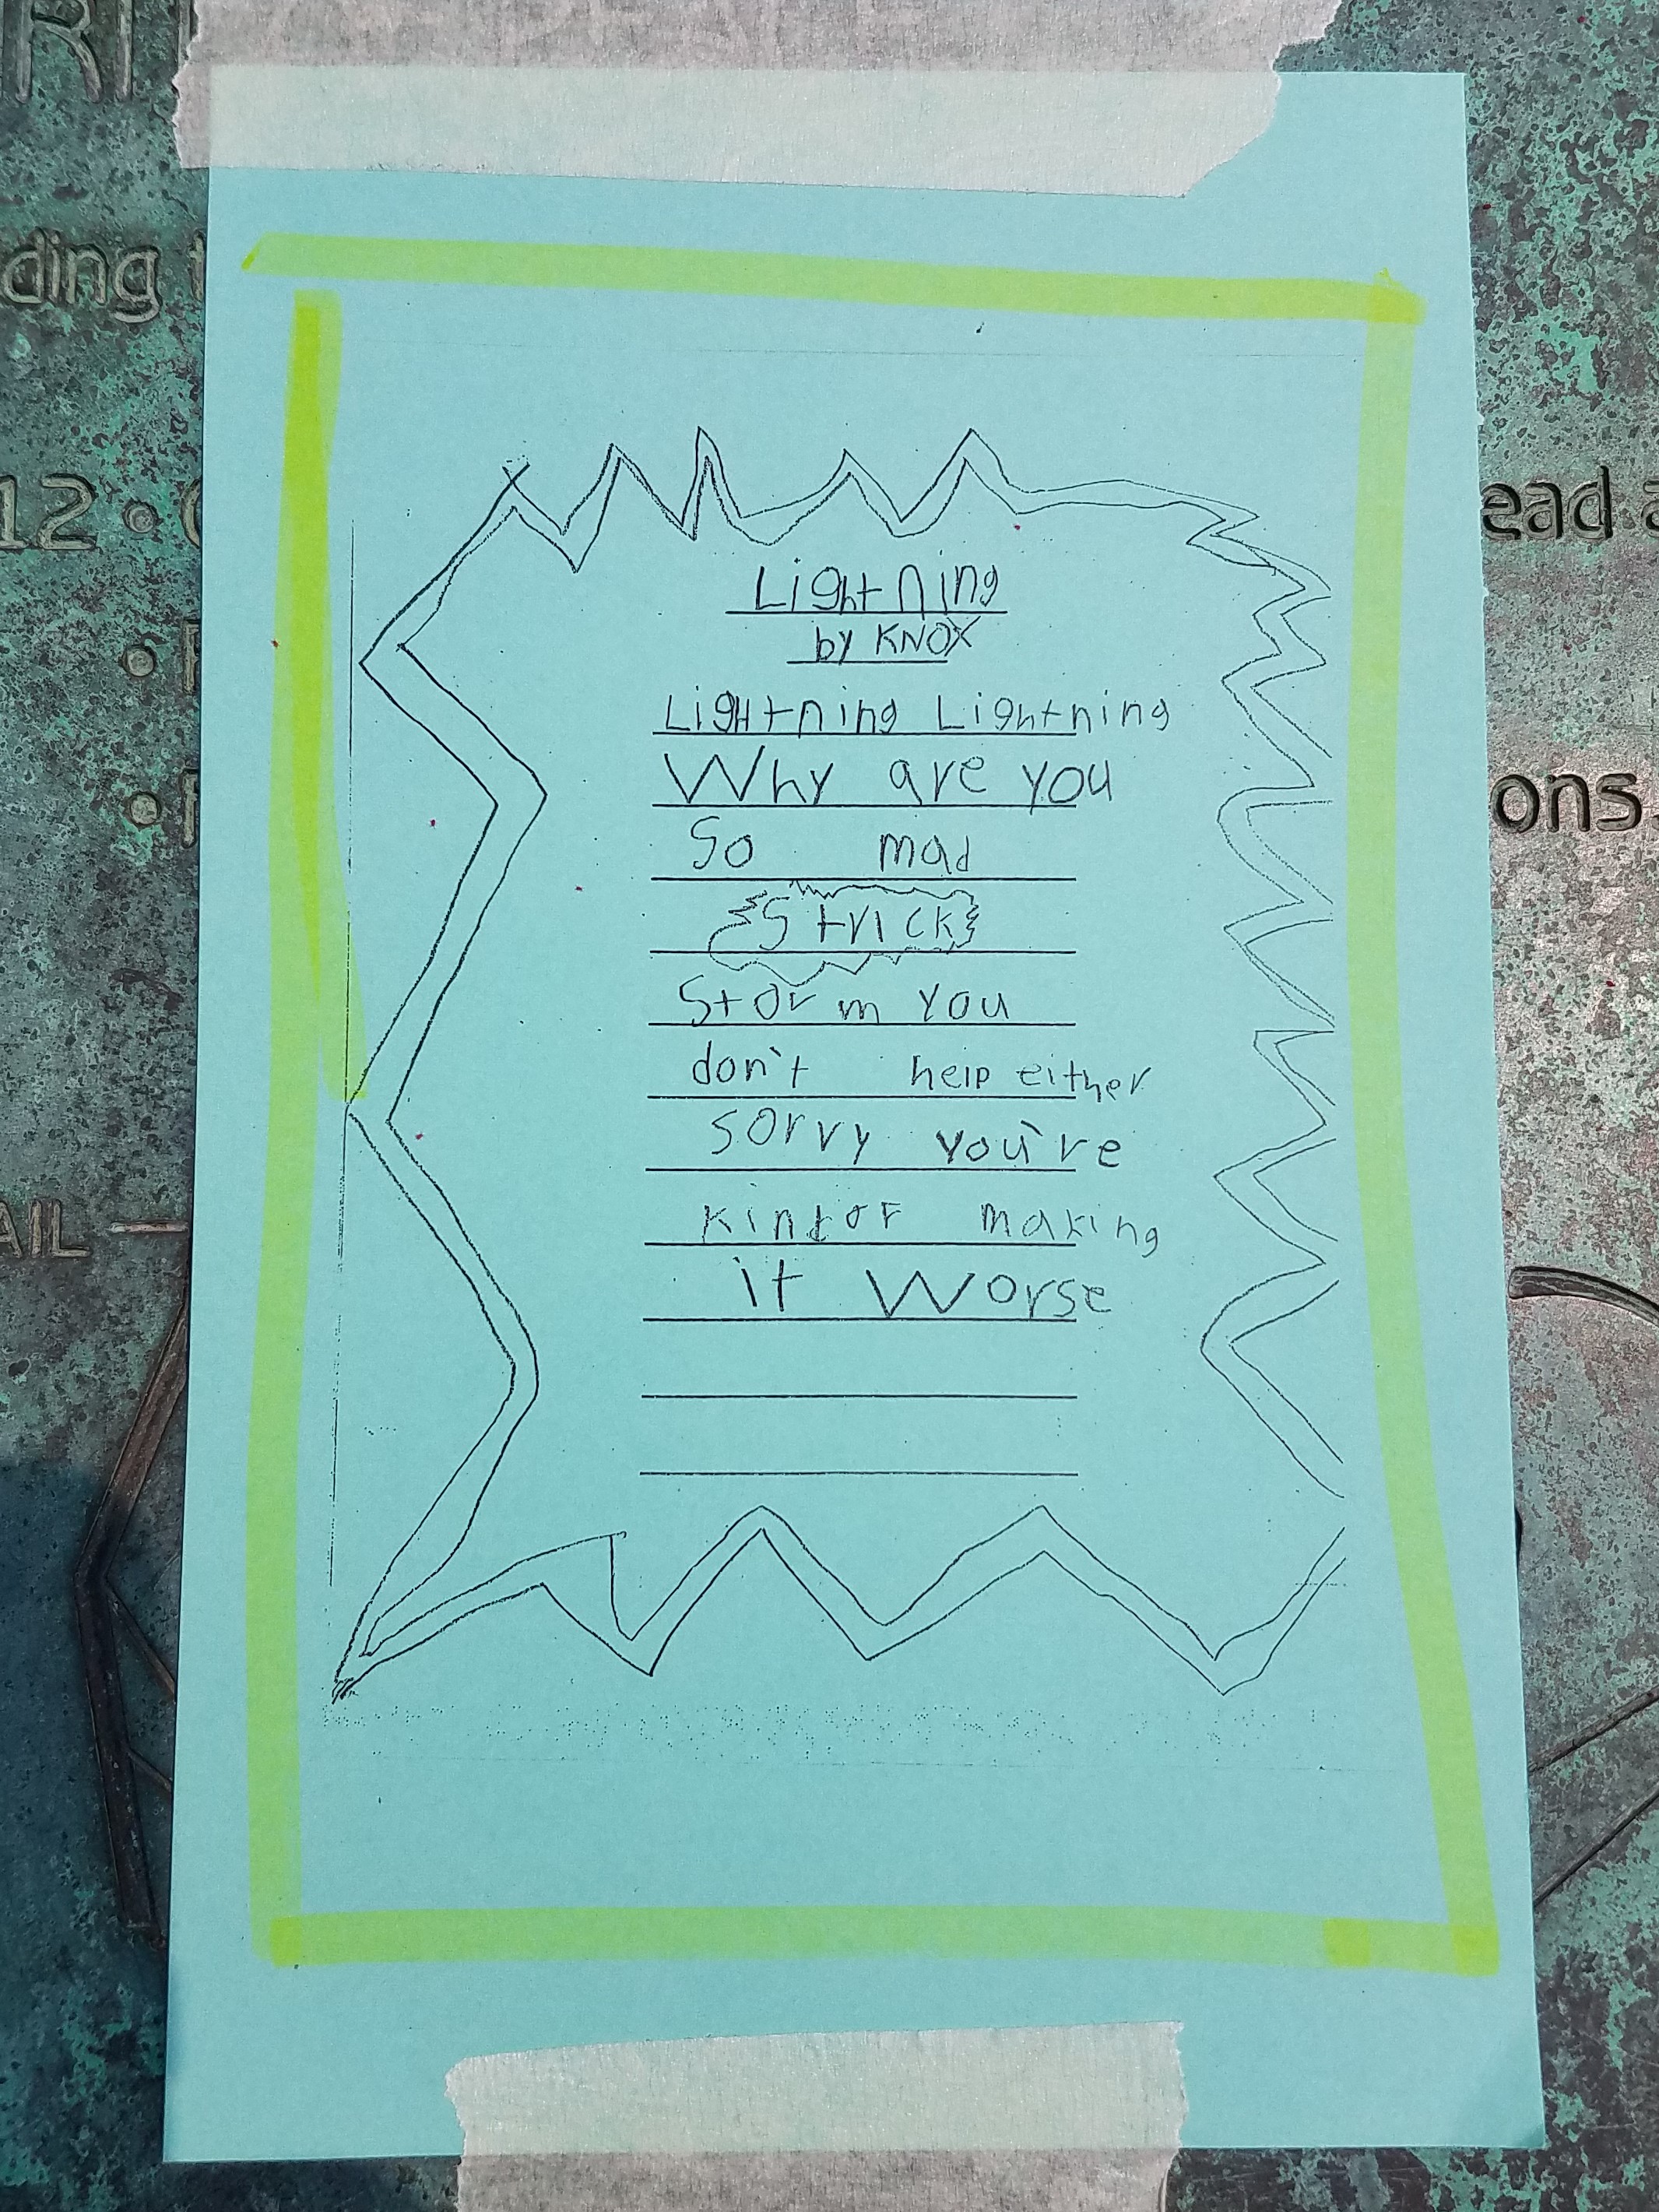 ding
12 •
ead a
ons.
AIL
Lightning
by KNOX
LigHtning Lightning
Why are you
So mad
Strick
Storm you
don't help either
sorry you're
kintof making
it worse